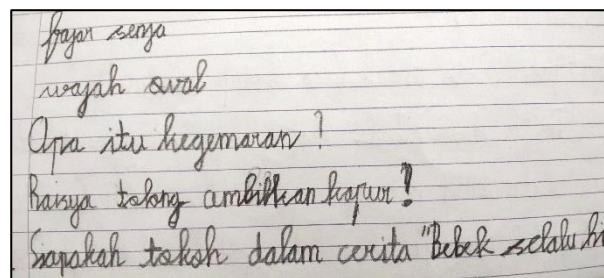 fajar senja
wajah oval
Apa itu kegemaran?
Raisya tolong ambilkan kapur!
Siapakah tokoh dalam cerita "Bebek selalu